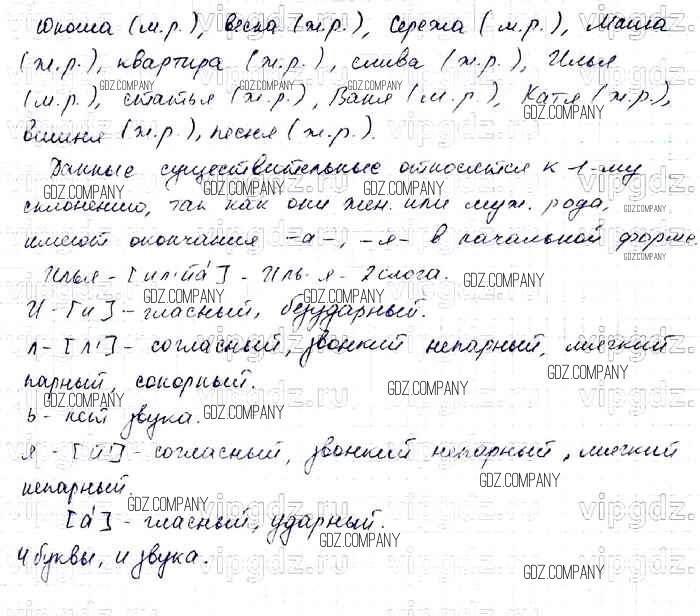 юноша (м.р.), весна (ж.р.), Сережа (м.р.), Маша
(ж.р.), квартира (ж.р.), слива (ж.р.), Илья
(м.р.), статья (ж.р.), Ваня (м.р.), Катя (ж.р.),
вишня (ж.р.), песня (ж.р.).
Данные существительные относятся к 1-му
склонению, так как они жен. или муж. рода,
имеют окончания -а-, -я- в начальной форме.
Илья - [ил'й'а́] - Иль-я - 2 слога.
И - [и] - гласный, безударный.
л - [л'] - согласный, звонкий непарный, мягкий
парный, сонорный.
ь - нет звука.
я - [й'] - согласный, звонкий непарный, мягкий
непарный.
[а́] - гласный, ударный.
4 буквы, 4 звука.